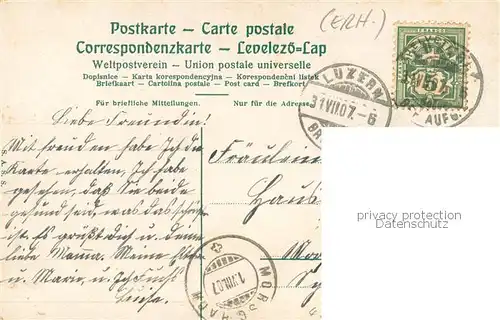 (ERH.)
Postkarte – Carte postale
Correspondenzkarte – Levelező-Lap
Weltpostverein – Union postale universelle
Dopisnice – Karta korespondencyjna – Korespondenční lístek
Briefkaart – Cartolina postale – Post card – Brefkort
Für briefliche Mitteilungen. Nur für die Adresse
FRANCO
5
LUZERN
31 VII 07 – 6
AUFG.
Liebe Freundin!
Mit freuden habe Ich die
Karte erhalten, Ich habe
gesehen, daß Sie beide
gesund seid, was das schönste
ist. Es grüßt dich u. deine
liebe Mama. Meine
u. Marie, u. Ich
Luise.
Fräulein
Haus
privacy protection
Datenschutz
MORSCHACH
1 VIII 07